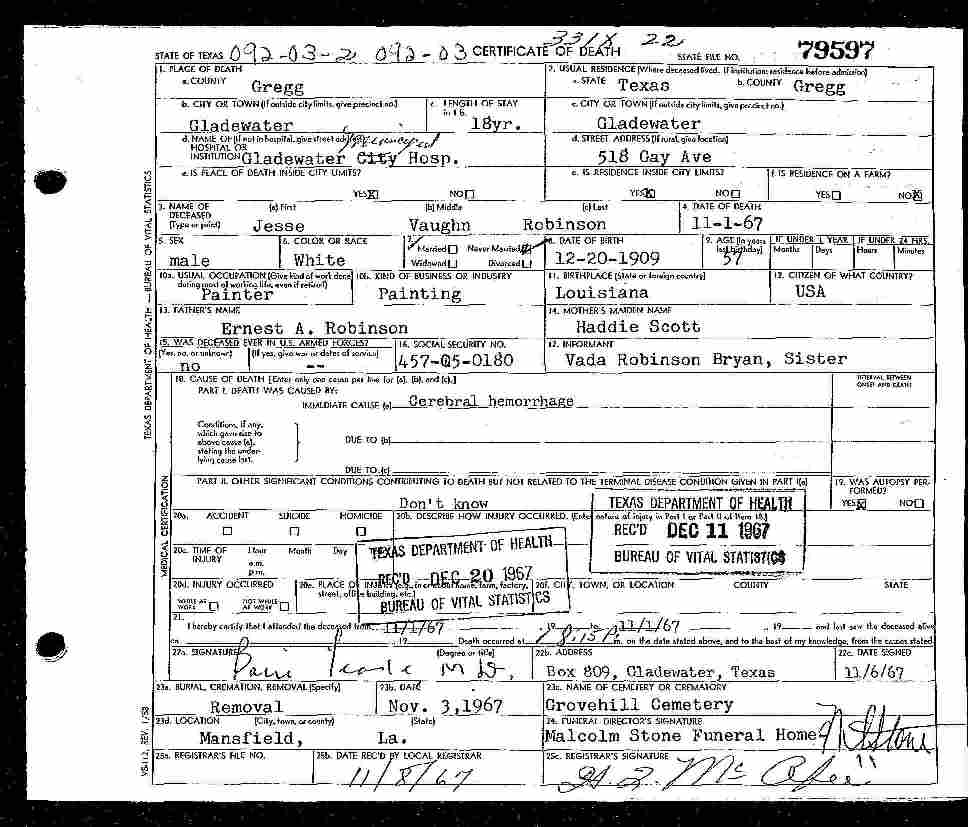 STATE OF TEXAS 092-03-2 092-03 CERTIFICATE OF DEATH 331X 22 STATE FILE NO. 79597
1. PLACE OF DEATH
a. COUNTY Gregg
2. USUAL RESIDENCE (Where deceased lived. If institution: residence before admission)
a. STATE Texas b. COUNTY Gregg
b. CITY OR TOWN (If outside city limits, give precinct no.) Gladewater
c. LENGTH OF STAY in 1 b. 18yr.
c. CITY OR TOWN (If outside city limits, give precinct no.) Gladewater
d. NAME OF (If not in hospital, give street address) HOSPITAL OR INSTITUTION Gladewater City Hosp. Municipal
d. STREET ADDRESS (If rural, give location) 518 Gay Ave
e. IS PLACE OF DEATH INSIDE CITY LIMITS? YES X NO
e. IS RESIDENCE INSIDE CITY LIMITS? YES X NO
f. IS RESIDENCE ON A FARM? YES NO X
3. NAME OF DECEASED (Type or print) (a) First Jesse (b) Middle Vaughn (c) Last Robinson
4. DATE OF DEATH 11-1-67
5. SEX male
6. COLOR OR RACE White
7. Married Never Married Widowed Divorced
8. DATE OF BIRTH 12-20-1909
9. AGE (In years last birthday) 57 IF UNDER 1 YEAR Months Days IF UNDER 24 HRS. Hours Minutes
10a. USUAL OCCUPATION (Give kind of work done during most of working life, even if retired) Painter
10b. KIND OF BUSINESS OR INDUSTRY Painting
11. BIRTHPLACE (State or foreign country) Louisiana
12. CITIZEN OF WHAT COUNTRY? USA
13. FATHER'S NAME Ernest A. Robinson
14. MOTHER'S MAIDEN NAME Haddie Scott
15. WAS DECEASED EVER IN U.S. ARMED FORCES? (Yes, no, or unknown) no (If yes, give war or dates of service) --
16. SOCIAL SECURITY NO. 457-05-0180
17. INFORMANT Vada Robinson Bryan, Sister
18. CAUSE OF DEATH [Enter only one cause per line for (a), (b), and (c).]
INTERVAL BETWEEN ONSET AND DEATH
PART I. DEATH WAS CAUSED BY:
IMMEDIATE CAUSE (a) Cerebral hemorrhage
Conditions, if any, which gave rise to above cause (a), stating the underlying cause last.
DUE TO (b)
DUE TO (c)
PART II. OTHER SIGNIFICANT CONDITIONS CONTRIBUTING TO DEATH BUT NOT RELATED TO THE TERMINAL DISEASE CONDITION GIVEN IN PART I(a)
Don't know
19. WAS AUTOPSY PERFORMED? YES X NO
20a. ACCIDENT SUICIDE HOMICIDE
20b. DESCRIBE HOW INJURY OCCURRED. (Enter nature of injury in Part I or Part II of item 18.)
TEXAS DEPARTMENT OF HEALTH
REC'D DEC 11 1967
BUREAU OF VITAL STATISTICS
20c. TIME OF INJURY Hour Month Day
a.m.
p.m.
TEXAS DEPARTMENT OF HEALTH
REC'D DEC 20 1967
BUREAU OF VITAL STATISTICS
20d. INJURY OCCURRED WHILE AT WORK NOT WHILE AT WORK
20e. PLACE OF INJURY (e.g., in or about home, farm, factory, street, office building, etc.)
20f. CITY, TOWN, OR LOCATION COUNTY STATE
21. I hereby certify that I attended the deceased from 11/1/67, 19 to 11/1/67, 19 and last saw the deceased alive
on , 19 . Death occurred at 8:15 P m. on the date stated above, and to the best of my knowledge, from the causes stated.
22a. SIGNATURE (Degree or title) M D,
22b. ADDRESS Box 809, Gladewater, Texas
22c. DATE SIGNED 11/6/67
23a. BURIAL, CREMATION, REMOVAL (Specify) Removal
23b. DATE Nov. 3,1967
23c. NAME OF CEMETERY OR CREMATORY Grovehill Cemetery
23d. LOCATION (City, town, or county) (State) Mansfield, La.
24. FUNERAL DIRECTOR'S SIGNATURE Malcolm Stone Funeral Home
25a. REGISTRAR'S FILE NO.
25b. DATE REC'D BY LOCAL REGISTRAR 11/8/67
25c. REGISTRAR'S SIGNATURE
TEXAS DEPARTMENT OF HEALTH — BUREAU OF VITAL STATISTICS
MEDICAL CERTIFICATION
VS-112, REV. 1/58